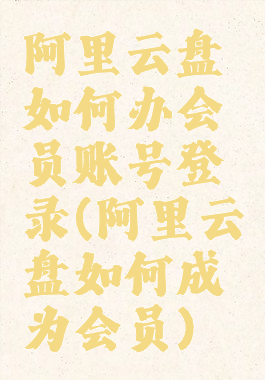 阿里云盘
如何办会
员账号登
录(阿里云
盘如何成
为会员)